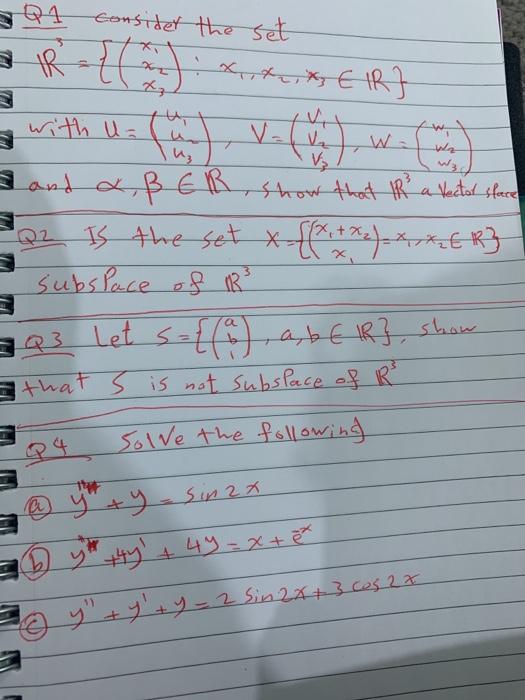 Q1 consider the set
ℝ³ = {(x₁ x₂ x₃) : x₁, x₂, x₃ ∈ ℝ}
with u = (u₁ u₂ u₃), V = (V₁ V₂ V₃), W = (w₁ w₂ w₃)
and α, β ∈ ℝ, show that ℝ³ a Vector space
Q2 IS the set X = {(x₁ + x₂ x₁) = x₁, x₂ ∈ ℝ}
subspace of ℝ³
Q3 Let S = {(a b 1), a, b ∈ ℝ}, show
that S is not subspace of ℝ³
Q4 Solve the following
ⓐ y'' + y = sin 2x
ⓑ y'' + 4y' + 4y = x + e⁻ˣ
ⓒ y'' + y' + y = 2 sin 2x + 3 cos 2x